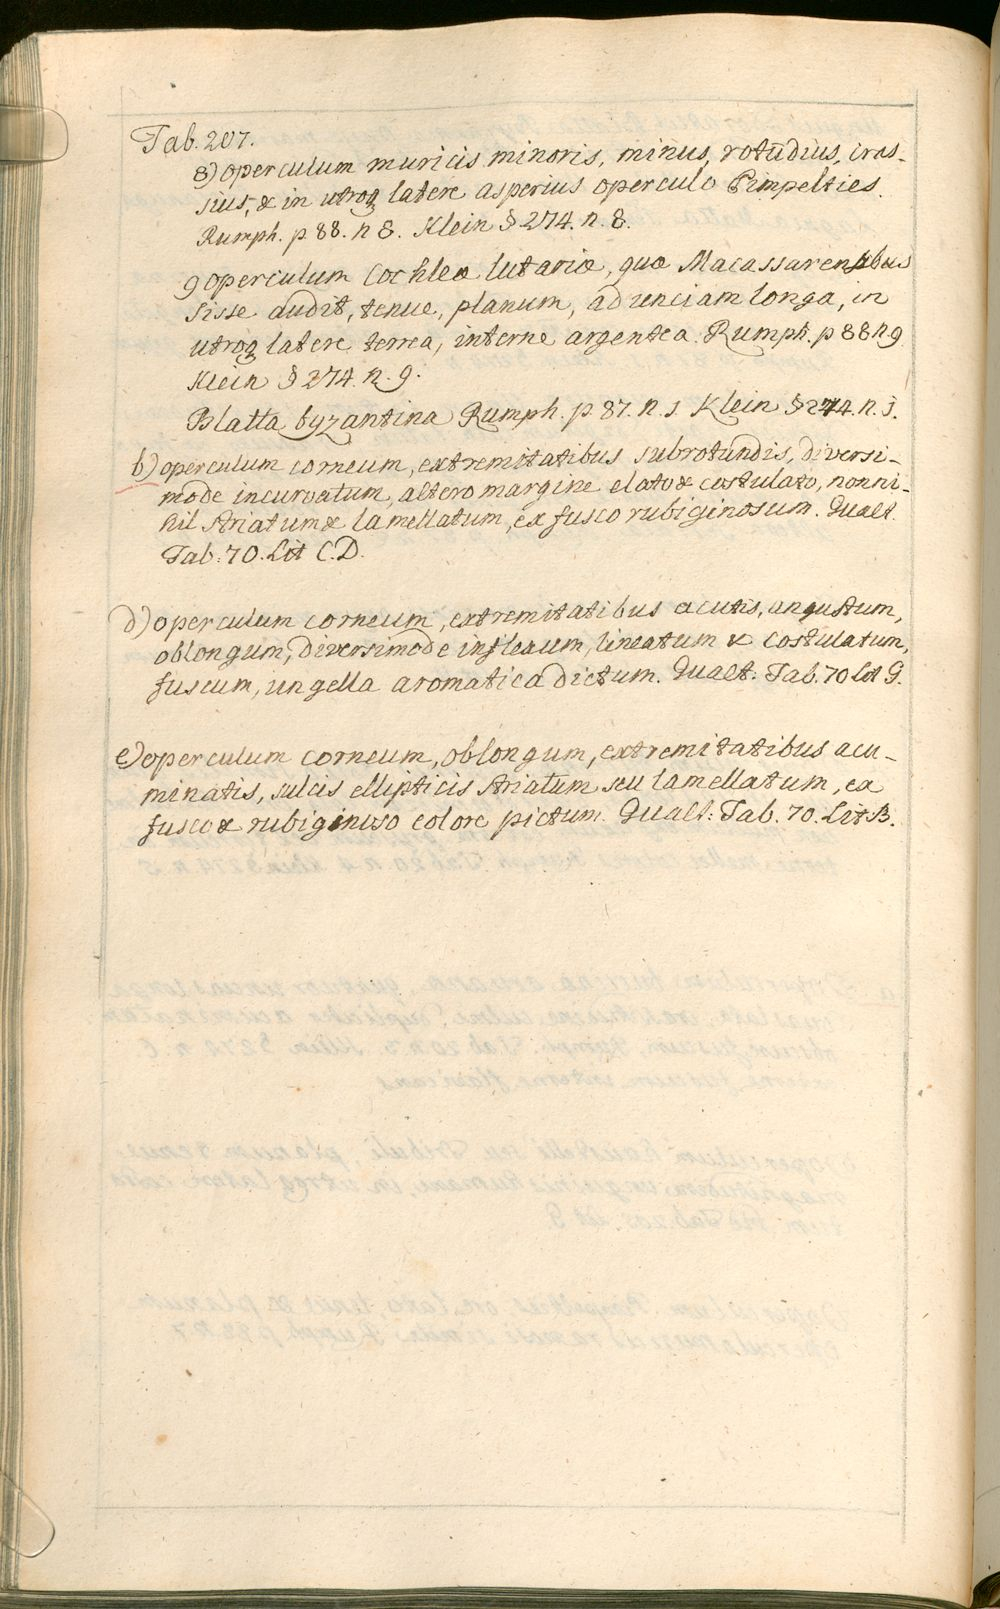 Tab. 207.
8) operculum muricis minoris, minus, rotūdius, cras-
sius, & in utroq latere asperius operculo Pimpelties.
Rumph. p 88. n 8. Klein § 274. n. 8.
9 operculum Cochleæ lutariæ, quæ Macassarensibus
Sisse audit, tenue, planum, ad unciam longa, in
utroq latere terrea, interne argentea. Rumph. p 88 n 9
Klein § 274. n. 9.
Blatta byzantina Rumph. p 87. n. 1 Klein § 274. n. 1.
b) operculum corneum, extremitatibus subrotundis, diversi-
mode incurvatum, altero margine elato & costulato, nonni-
hil striatum & lamellatum, ex fusco rubiginosum. Gualt.
Tab: 70. Lit C.D.
d) operculum corneum, extremitatibus acutis, angustum,
oblongum, diversimode inflexum, lineatum & costulatum,
fuscum, ungella aromatica dictum. Gualt: Tab. 70 Lit G.
e) operculum corneum, oblongum, extremitatibus acu-
minatis, sulcis ellipticis striatum seu lamellatum, ex
fusco & rubiginoso colore pictum. Gualt: Tab. 70. Lit B.